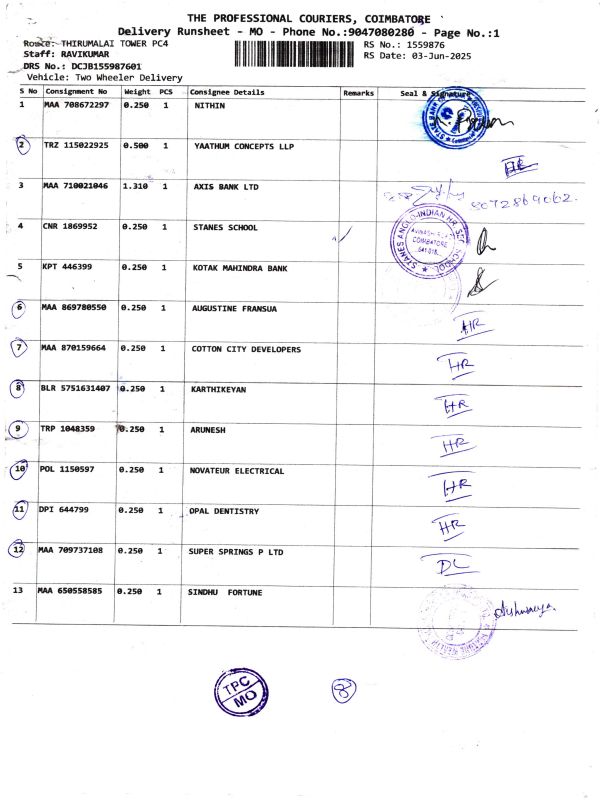 THE PROFESSIONAL COURIERS, COIMBATORE
Delivery Runsheet - MO - Phone No.:9047080280 - Page No.:1
Route: THIRUMALAI TOWER PC4
RS No.: 1559876
Staff: RAVIKUMAR
RS Date: 03-Jun-2025
DRS No.: DCJB155987601
Vehicle: Two Wheeler Delivery
S No Consignment No Weight PCS Consignee Details Remarks Seal & Signature
1 MAA 708672297 0.250 1 NITHIN
2 TRZ 115022925 0.500 1 YAATHUM CONCEPTS LLP HR
3 MAA 710021046 1.310 1 AXIS BANK LTD 8072869062.
4 CNR 1869952 0.250 1 STANES SCHOOL
STANES ANGLO-INDIAN HR. SEC. SCHOOL
COIMBATORE
5 KPT 446399 0.250 1 KOTAK MAHINDRA BANK
6 MAA 869780550 0.250 1 AUGUSTINE FRANSUA HR
7 MAA 870159664 0.250 1 COTTON CITY DEVELOPERS HR
8 BLR 5751631407 0.250 1 KARTHIKEYAN HR
9 TRP 1048359 0.250 1 ARUNESH HR
10 POL 1150597 0.250 1 NOVATEUR ELECTRICAL HR
11 DPI 644799 0.250 1 OPAL DENTISTRY HR
12 MAA 709737108 0.250 1 SUPER SPRINGS P LTD DL
13 MAA 650558585 0.250 1 SINDHU FORTUNE
TPC
MO
8